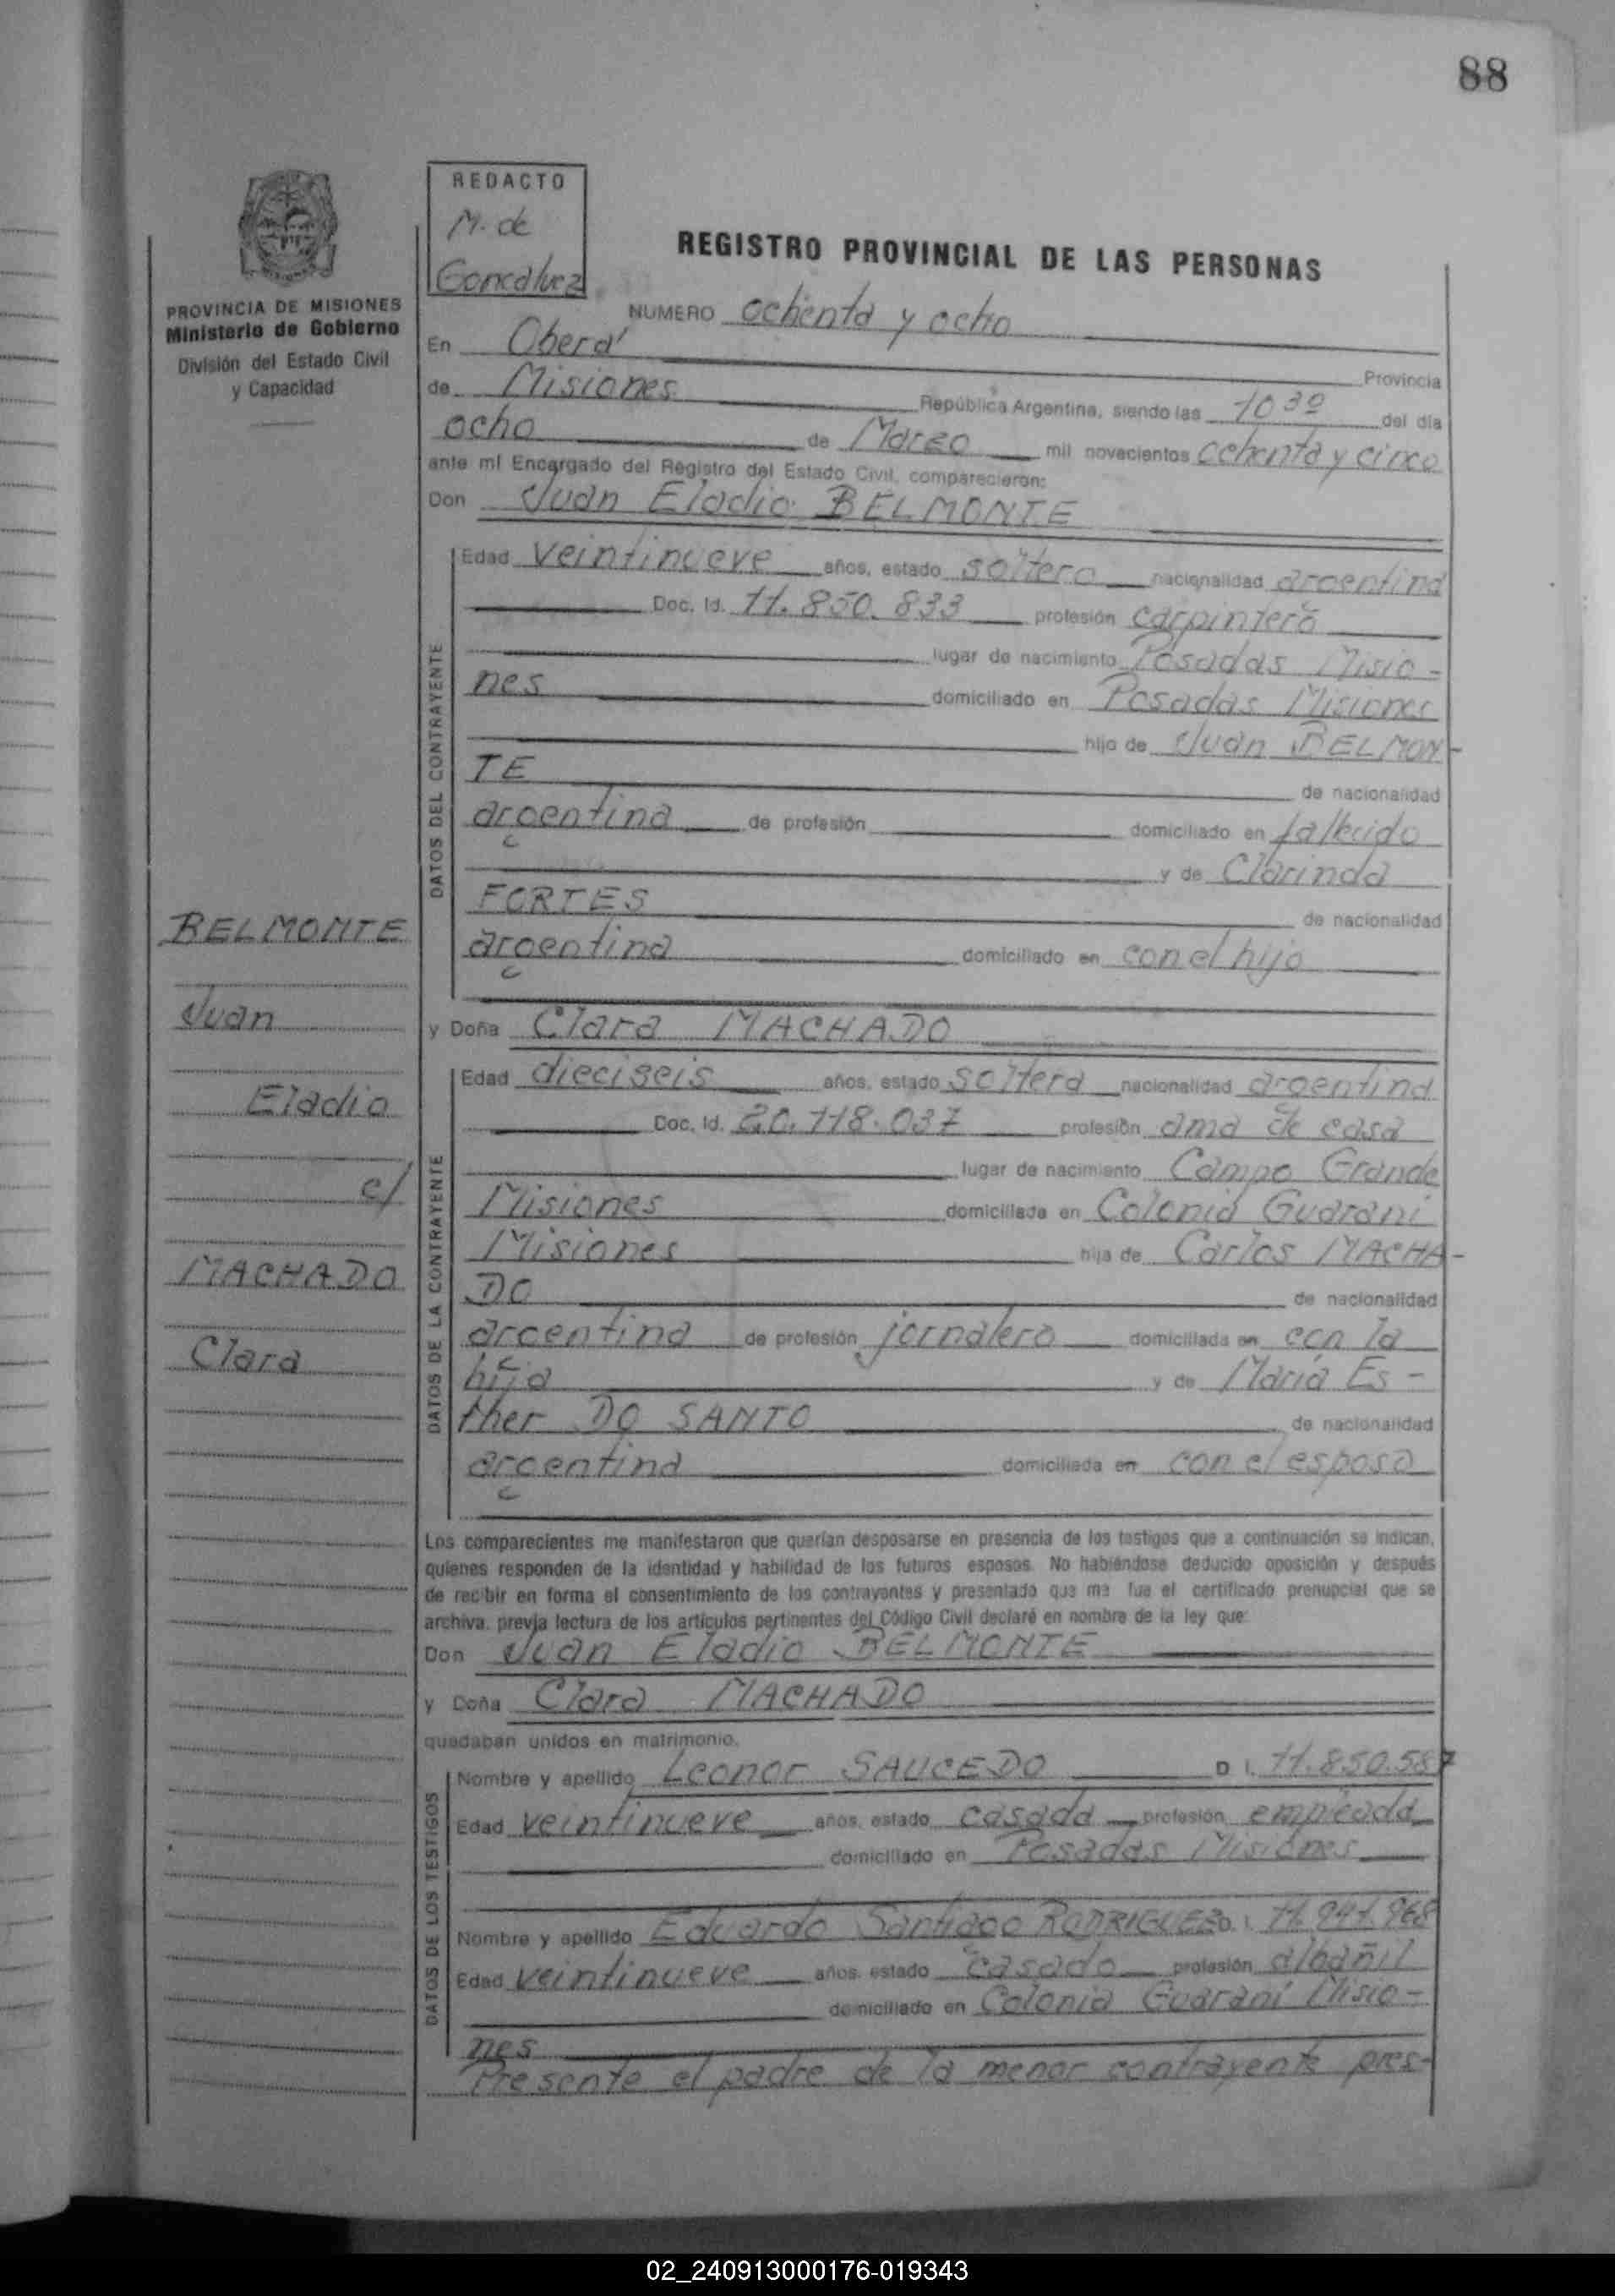 88
REDACTO
M. de
Goncalvez
PROVINCIA DE MISIONES
Ministerio de Gobierno
División del Estado Civil
y Capacidad
REGISTRO PROVINCIAL DE LAS PERSONAS
NUMERO ochenta y ocho
En Oberá Provincia
de Misiones República Argentina, siendo las 10 30 del día
ocho de Marzo mil novecientos ochenta y cinco
ante mí Encargado del Registro del Estado Civil, comparecieron:
Don Juan Eladio BELMONTE
DATOS DEL CONTRAYENTE
Edad veintinueve años, estado soltero nacionalidad argentina
Doc. Id. 11.850.833 profesión carpintero
lugar de nacimiento Posadas Misio-
nes domiciliado en Posadas Misiones
hijo de Juan BELMON-
TE de nacionalidad
argentina de profesión domiciliado en fallecido
y de Clarinda
FORTES de nacionalidad
argentina domiciliado en con el hijo
y Doña Clara MACHADO
DATOS DE LA CONTRAYENTE
Edad dieciseis años, estado soltera nacionalidad argentina
Doc. Id. 20.118.037 profesión ama de casa
lugar de nacimiento Campo Grande
Misiones domiciliada en Colonia Guaraní
Misiones hija de Carlos MACHA-
DO de nacionalidad
argentina de profesión jornalero domiciliada en con la
hija y de María Es-
ther DO SANTO de nacionalidad
argentina domiciliada en con el esposo
BELMONTE
Juan
Eladio
c/
MACHADO
Clara
Los comparecientes me manifestaron que querían desposarse en presencia de los testigos que a continuación se indican,
quienes responden de la identidad y habilidad de los futuros esposos. No habiéndose deducido oposición y después
de recibir en forma el consentimiento de los contrayentes y presentado que me fue el certificado prenupcial que se
archiva, previa lectura de los artículos pertinentes del Código Civil declaré en nombre de la ley que:
Don Juan Eladio BELMONTE
y Doña Clara MACHADO
quedaban unidos en matrimonio.
DATOS DE LOS TESTIGOS
Nombre y apellido Leonor SAUCEDO D. I. 11.850.587
Edad veintinueve años, estado casada profesión empleada
domiciliado en Posadas Misiones
Nombre y apellido Eduardo Santiago RODRIGUEZ D. I. 11.941.968
Edad veintinueve años, estado casado profesión albañil
domiciliado en Colonia Guaraní Misio-
nes
Presente el padre de la menor contrayente pres-
02_240913000176-019343